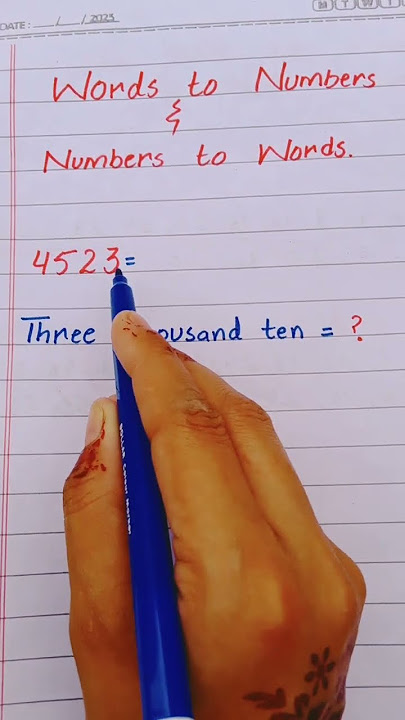 M T W T
DATE: __/__/2023
Words to Numbers
&
Numbers to Words.
4523=
Three ousand ten = ?